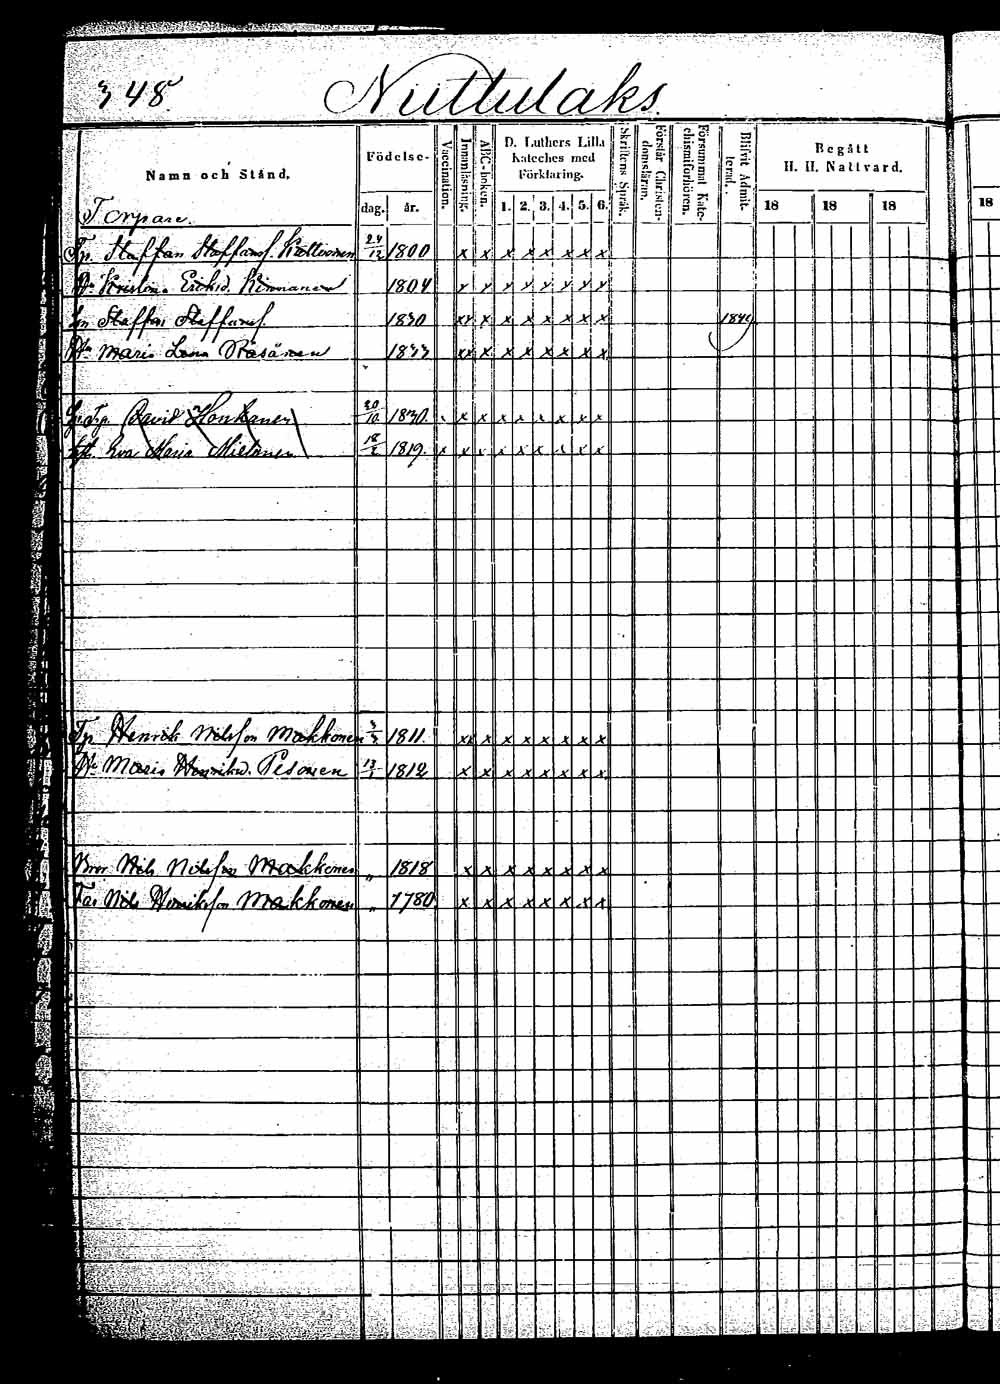 348.
Nuttulaks.
Namn och Stånd.
Födelse-
dag. år.
Vaccination.
Innanläsning.
ABC-boken.
D. Luthers Lilla
Kateches med
Förklaring.
1. 2. 3. 4. 5. 6.
Skriftens Språk.
Förstår Christen-
domsläran.
Försummat Kate-
chismiförhören.
Blifvit Admit-
terad.
Begått
H. H. Nattvard.
18 18 18
18
Torpare.
Tp. Staffan Staffansf. 24/12 1800 x x x x x x x x
Hu Kristina Eriksd. Kinnanen 1804 x x x x x x x x
Sn Staffan Staffansf. 1830 xx x x x x x x x 1849
Hu Maria Lena Räsänen 1833 xx x x x x x x x
David Honkanen 20/10 1830. x x x x x x x x
Eva Maria Mietinen 18/2 1819. x x x x x x x x x
Tp. Henrik Nilsson Makkonen 1811. xx x x x x x x x
Hu Maria Henriksd. Pesonen 13/1 1812 x x x x x x x x
Bror Nils Nilsson Makkonen " 1818 x x x x x x x x
Far Nils Henriksson Makkonen " 1780 x x x x x x x x